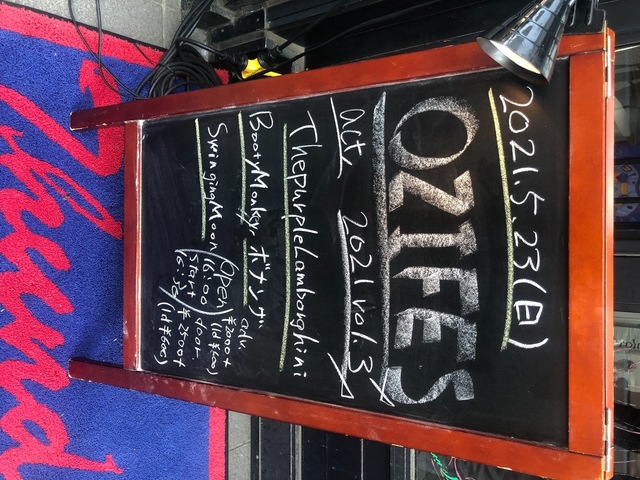 2021.5.23(日)
OZIFES
2021 vol.3
act
ThepurpleLamborghini
BootyMonky. ボナンザ
SwingingMoon
Open 16:00
start 16:30
adv. ¥2000+(1d ¥600)
door. ¥2500+(1d ¥600)